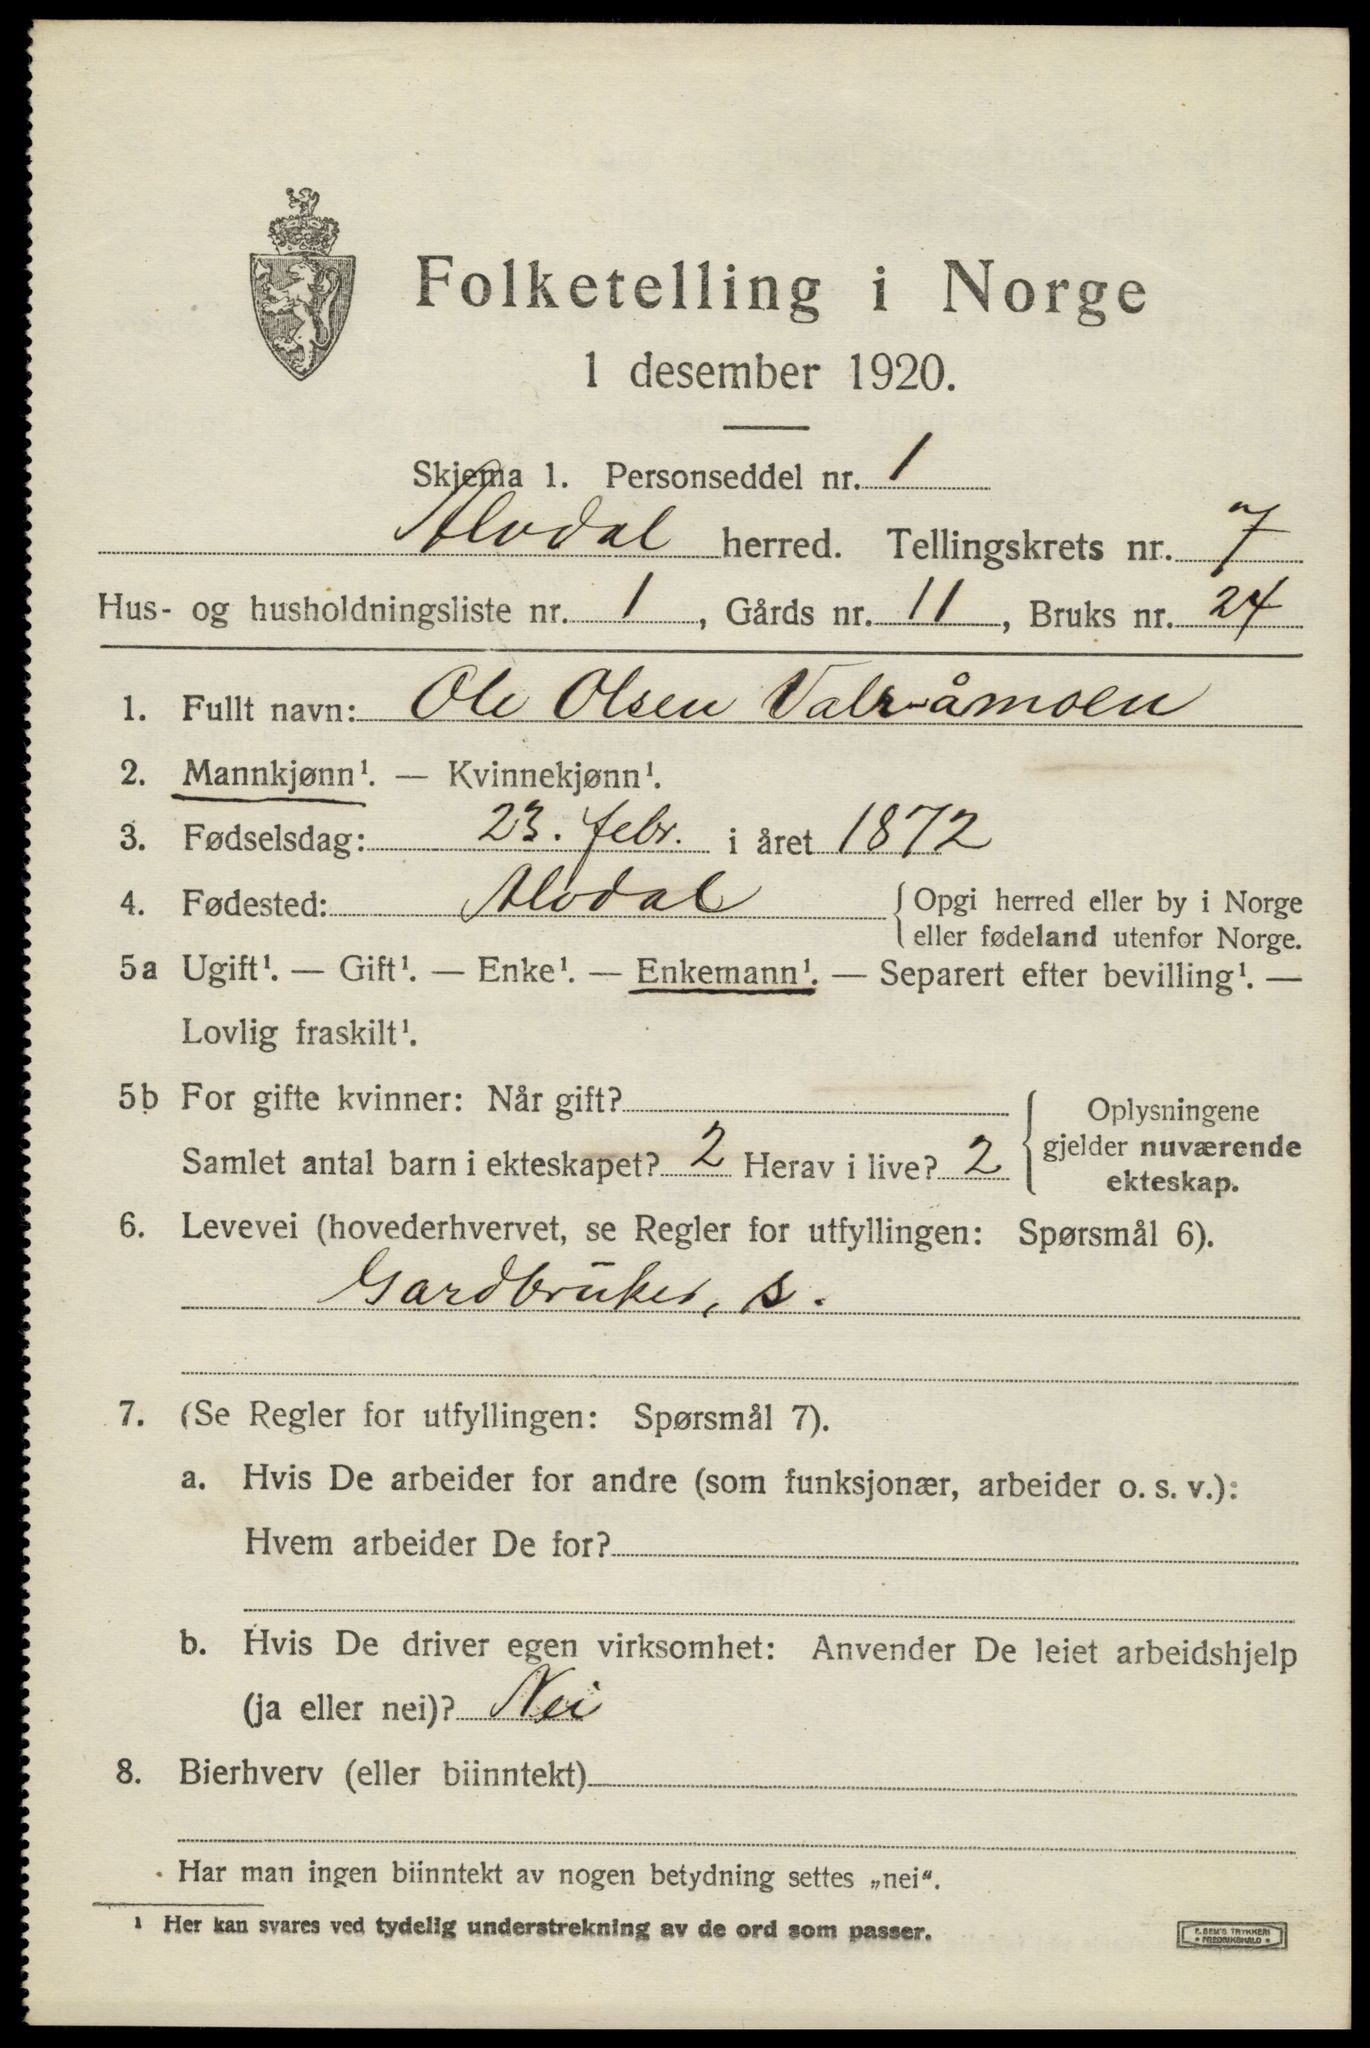 Folketelling i Norge
1 desember 1920.
Skjema 1. Personseddel nr. 1
Alvdal herred. Tellingskrets nr. 7
Hus- og husholdningsliste nr. 1, Gårds nr. 11, Bruks nr. 24
1. Fullt navn: Ole Olsen
2. Mannkjønn¹. — Kvinnekjønn¹.
3. Fødselsdag: 23. febr. i året 1872
4. Fødested: Alvdal { Opgi herred eller by i Norge
eller fødeland utenfor Norge.
5a Ugift¹. — Gift¹. — Enke¹. — Enkemann¹. — Separert efter bevilling¹. —
Lovlig fraskilt¹.
5b For gifte kvinner: Når gift?
Samlet antal barn i ekteskapet? 2 Herav i live? 2
{ Oplysningene
gjelder nuværende
ekteskap.
6. Levevei (hovederhvervet, se Regler for utfyllingen: Spørsmål 6).
Gardbruker, s.
7. (Se Regler for utfyllingen: Spørsmål 7).
a. Hvis De arbeider for andre (som funksjonær, arbeider o. s. v.):
Hvem arbeider De for?
b. Hvis De driver egen virksomhet: Anvender De leiet arbeidshjelp
(ja eller nei)? Nei
8. Bierhverv (eller biinntekt)
Har man ingen biinntekt av nogen betydning settes „nei“.
¹ Her kan svares ved tydelig understrekning av de ord som passer.
E. SEM'S TRYKKERI
* FREDRIKSHALD *